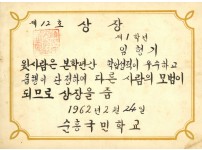 제12호
상장
제1학년
임형기
윗사람은 본학년간 학업성적이 우수하고
품행이 단정하여 다른 사람의 모범이
되므로 상장을 줌
1962년 2월 24일
순흥국민학교